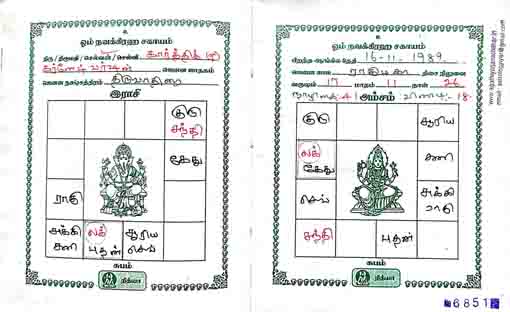 உ
ஓம் நவக்கிரஹ சகாயம்
திரு / திருமதி / செல்வன் / செல்வி கார்த்திக் (எ)
என்பவரின் ஜாதகம்
ஜனன நட்சத்திரம் திருவாதிரை
இராசி
குரு
சந்தி
கேது
ராகு
சுக்கி
சனி
லக்
புதன்
சூரிய
செவ்
சுபம்
நித்யா
உ
ஓம் நவக்கிரஹ சகாயம்
பிறந்த ஆங்கில தேதி 16-11-1989
ஜனன கால ராகு திசை நிலுவை
வருஷம் 17 மாதம் 11 நாள் 26
நாழிகை 4 அம்சம் விநாடி 18
குரு
சூரிய
லக்
கேது
சனி
செவ்
சுக்கி
ராகு
சந்தி
புதன்
சுபம்
நித்யா
6851